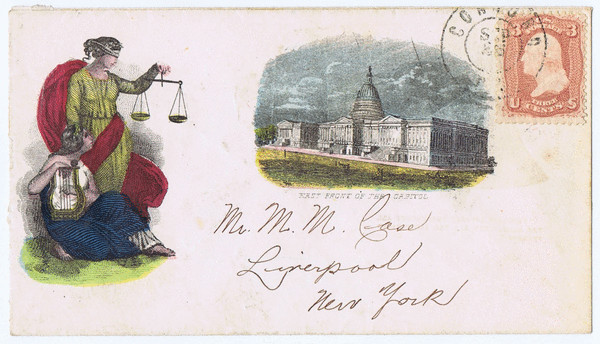 3 3
U THREE CENTS S
EAST FRONT OF THE CAPITOL
Mr. M. M. Case
Liverpool
New York